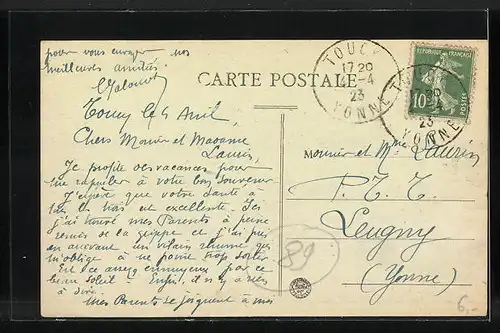 pour vous envoyer nos
meilleures amitiés
CARTE POSTALE
TOUCY
17 20
-4
23
YONNE
REPUBLIQUE FRANÇAISE
10
POSTES
Toucy le 4 Avril,
Chers Monsieur et Madame
Laurin,
Je profite des vacances pour
me rappeler à votre bon souvenir
J'espère que votre santé à
tous les trois est excellente. Ici
j'ai trouvé mes Parents à peine
remis de la grippe et j'ai pris
en arrivant un vilain rhume qui
m'oblige à ne point trop sortir
Est-ce assez ennuyeux par ce
beau soleil — Enfin, il n'y a rien
à dire.
Mes Parents se joignent à moi
Monsieur et Mme Laurin
P.T.T.
Leugny
(Yonne)
89
6,-